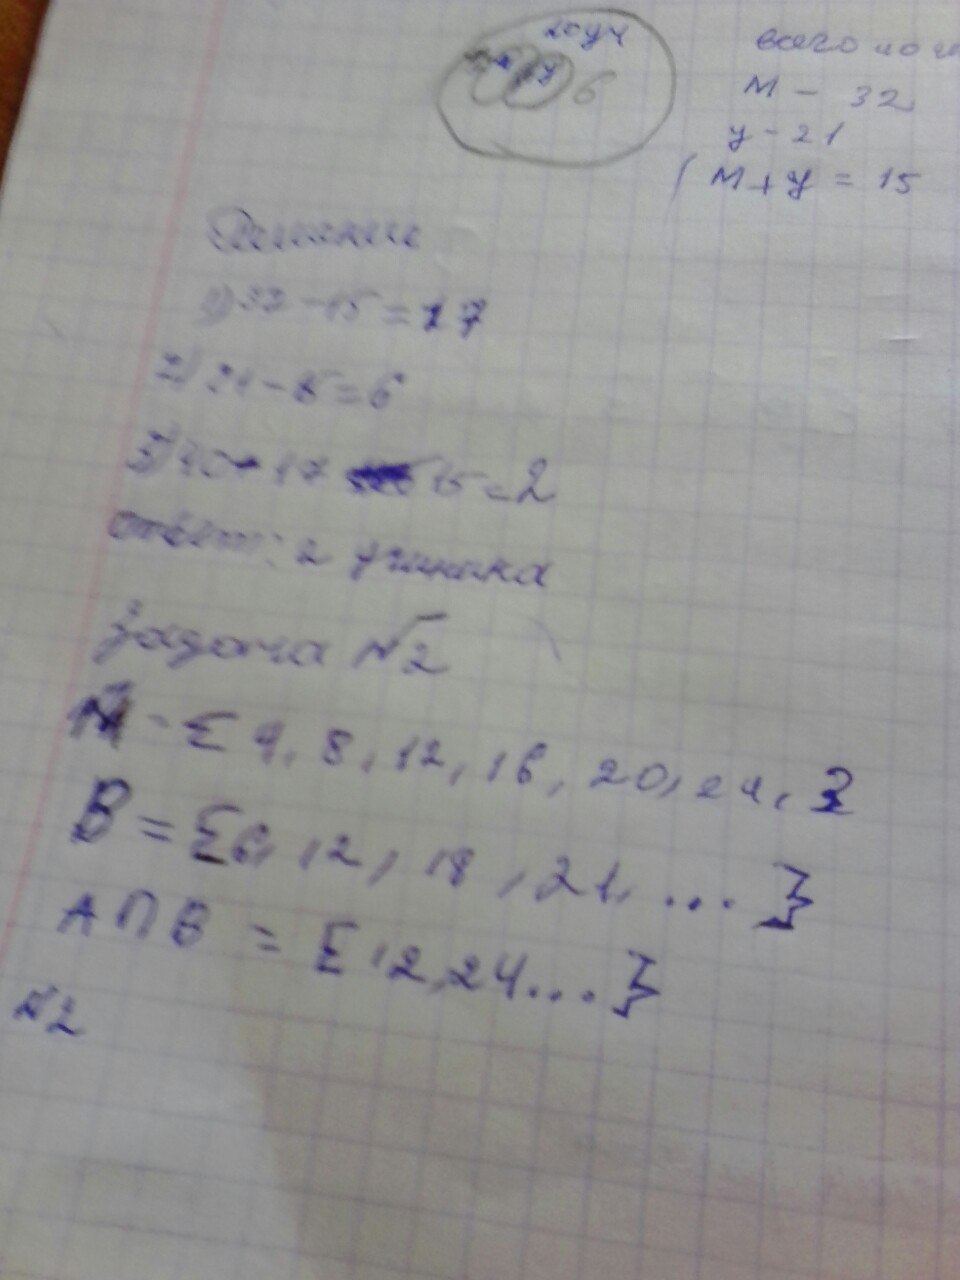 20 уч
6
всего
М - 32
у - 21
(М + у = 15
Решение
1) 32 - 15 = 17
2) 21 - 15 = 6
3) 40 - 17 15 = 2
ответ: 2 ученика
Задача №2
- { 4, 8, 12, 16, 20, 24,
B = { 6, 12, 18, 21, ... }
A ∩ B = { 12, 24 ... }
№2